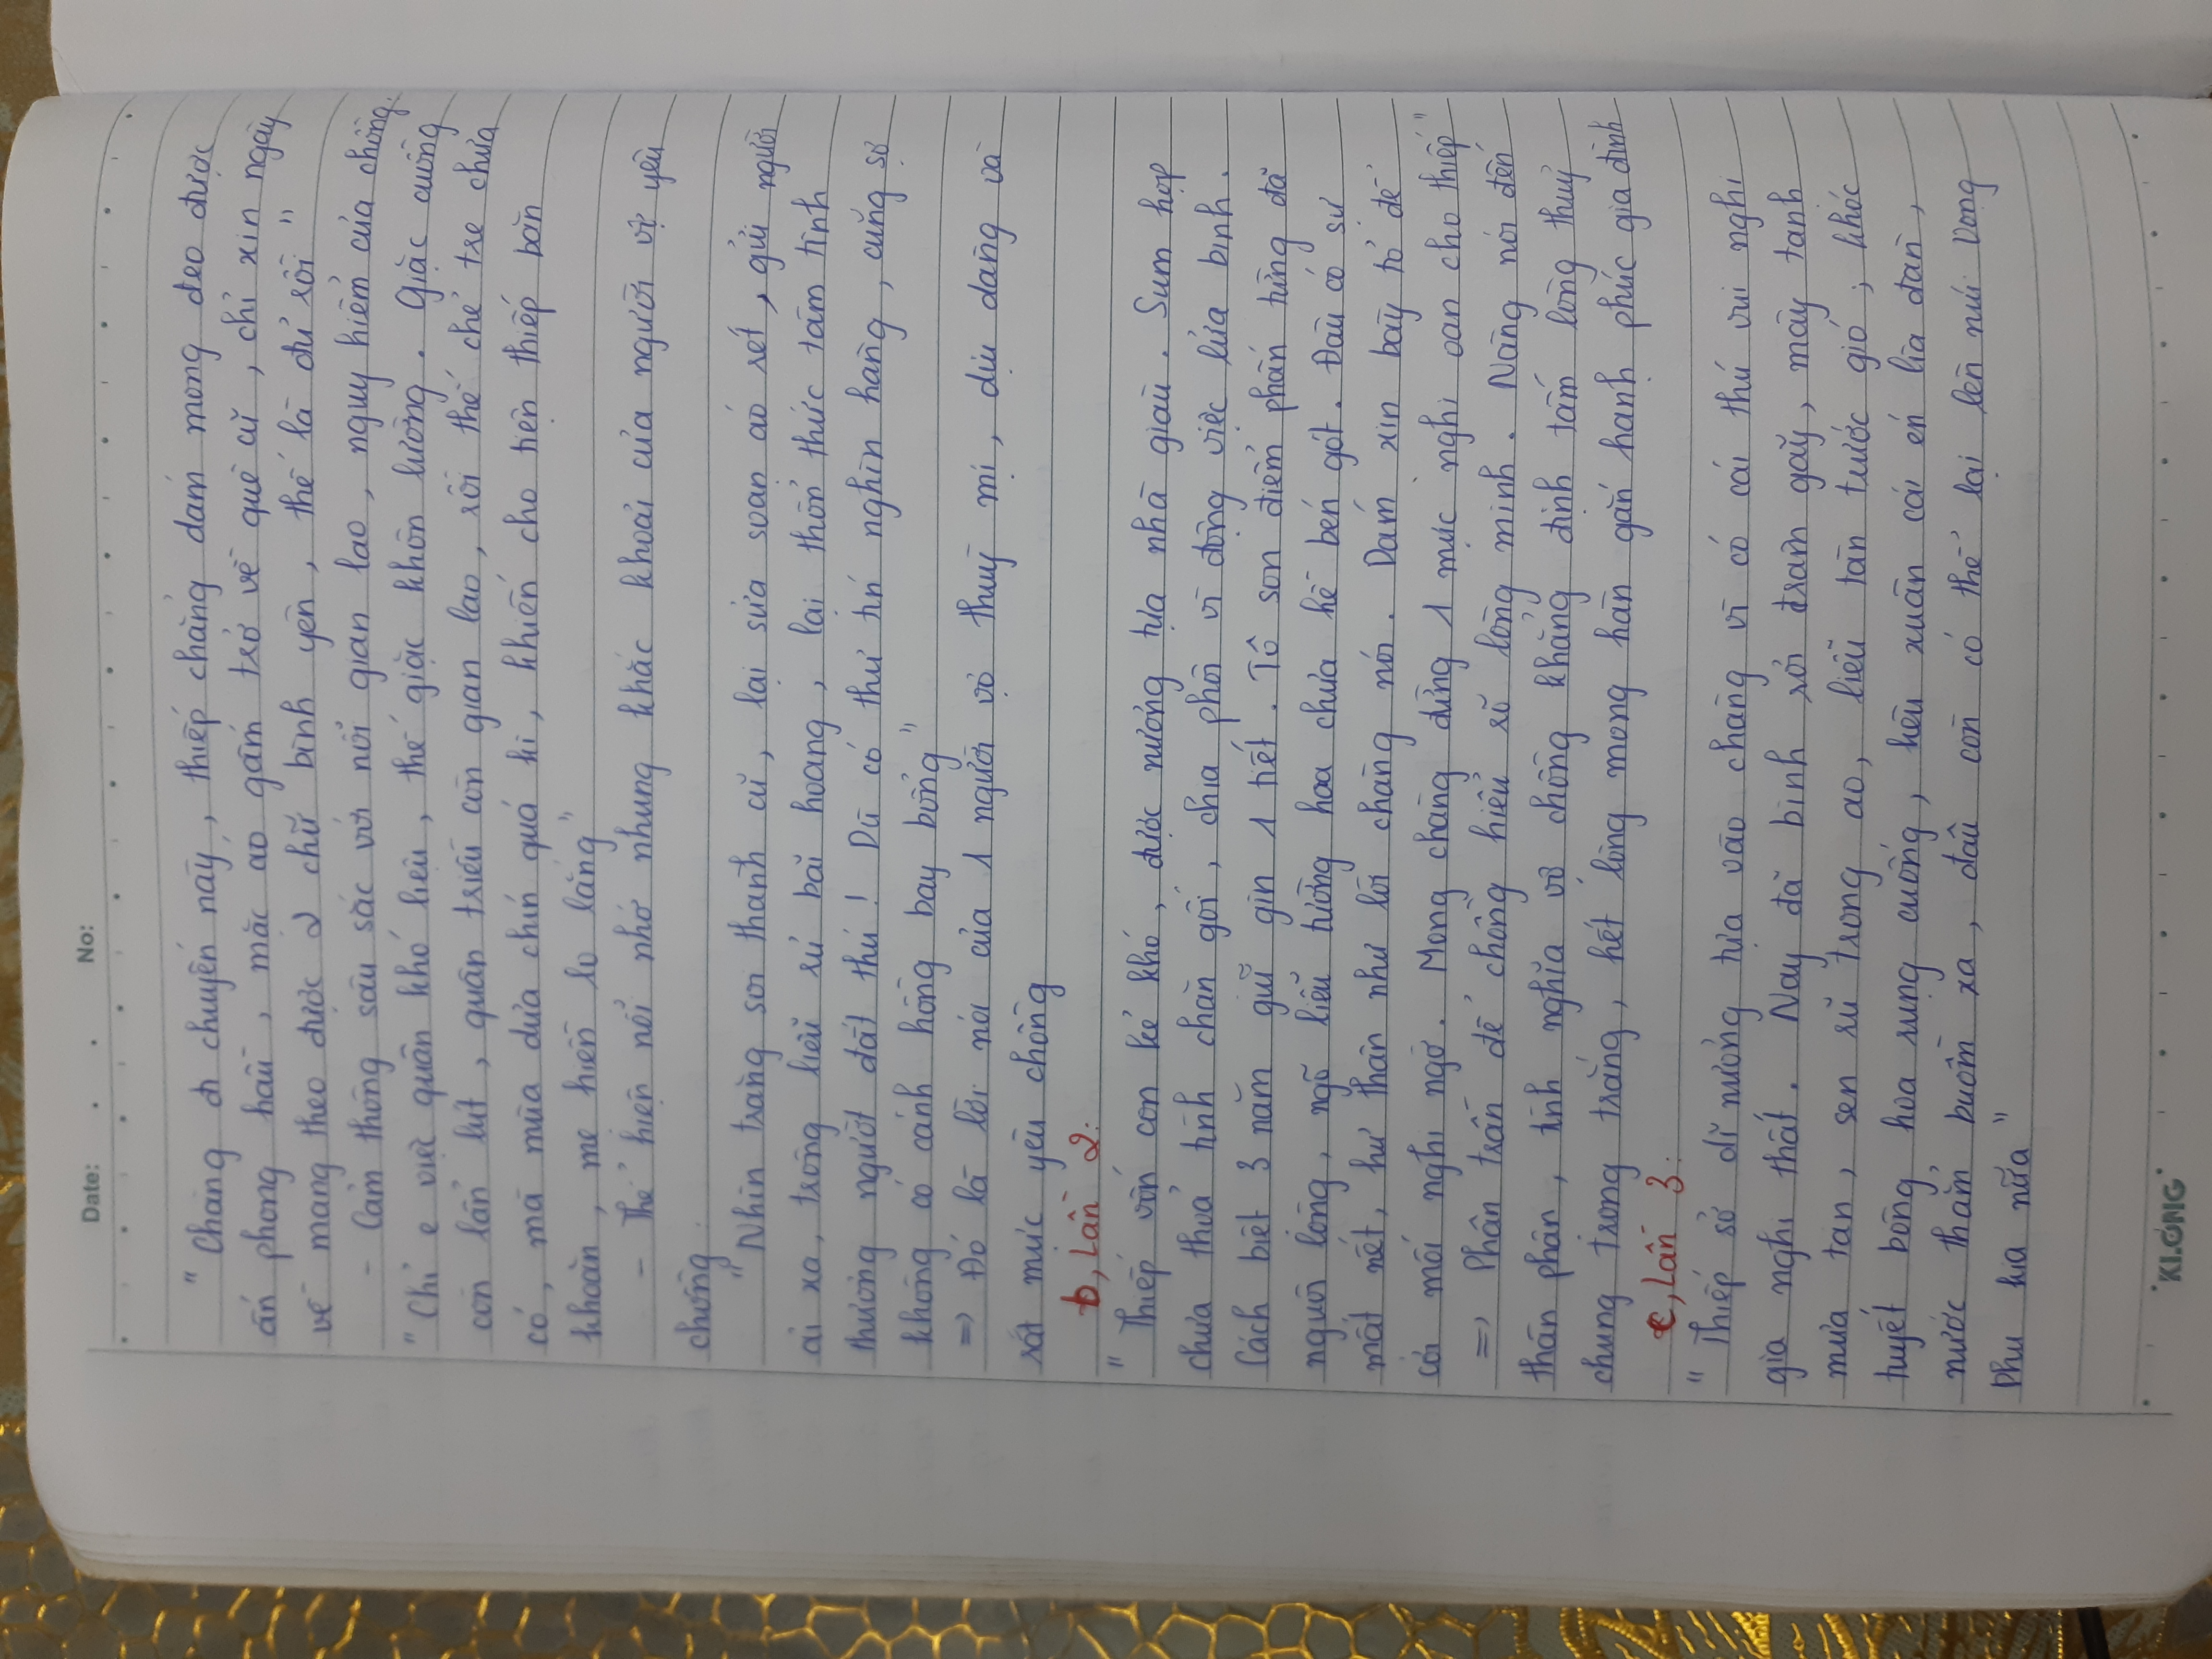 Date: . . No:
"Chàng đi chuyến này, thiếp chẳng dám mong đeo được
ấn phong hầu, mặc áo gấm trở về quê cũ, chỉ xin ngày
về mang theo được 2 chữ bình yên, thế là đủ rồi"
- Cảm thông sâu sắc với nỗi gian lao, nguy hiểm của chồng.
"Chỉ e việc quân khó liệu, thế giặc khôn lường. Giặc cuồng
còn lẩn lút, quân triều còn gian lao, rồi thế chẻ tre chưa
có, mà mùa dưa chín quá kì, khiến cho tiện thiếp băn
khoăn, mẹ hiền lo lắng"
- Thể hiện nỗi nhớ nhung khắc khoải của người vợ yêu
chồng:
"Nhìn trăng soi thành cũ, lại sửa soạn áo rét, gửi người
ải xa, trông liễu rủ bãi hoang, lại thổn thức tâm tình
thương người đất thú! Dù có thư tín nghìn hàng, cũng sợ
không có cánh hồng bay bổng"
=> Đó là lời nói của 1 người vợ thuỳ mị, dịu dàng và
rất mực yêu chồng
b, Lần 2:
"Thiếp vốn con kẻ khó, được nương tựa nhà giàu. Sum họp
chưa thoả tình chăn gối, chia phôi vì động việc lửa binh.
Cách biệt 3 năm giữ gìn 1 tiết. Tô son điểm phấn từng đã
nguôi lòng, ngõ liễu tường hoa chưa hề bén gót. Đâu có sự
mất nết, hư thân như lời chàng nói. Dám xin bày tỏ để
cởi mối nghi ngờ. Mong chàng đừng 1 mực nghi oan cho thiếp"
=> Phân trần để chồng hiểu rõ lòng mình. Nàng nói đến
thân phận, tình nghĩa vợ chồng khẳng định tấm lòng thuỷ
chung trong trắng, hết lòng mong hàn gắn hạnh phúc gia đình
c, Lần 3:
"Thiếp sở dĩ nương tựa vào chàng vì có cái thú vui nghi
gia nghi thất. Nay đã bình rơi trâm gãy, mây tạnh
mưa tan, sen rũ trong ao, liễu tàn trước gió; khóc
tuyết bông hoa rụng cuống, kêu xuân cái én lìa đàn,
nước thẳm buồm xa, đâu còn có thể lại lên núi Vọng
Phu kia nữa"
KLONG